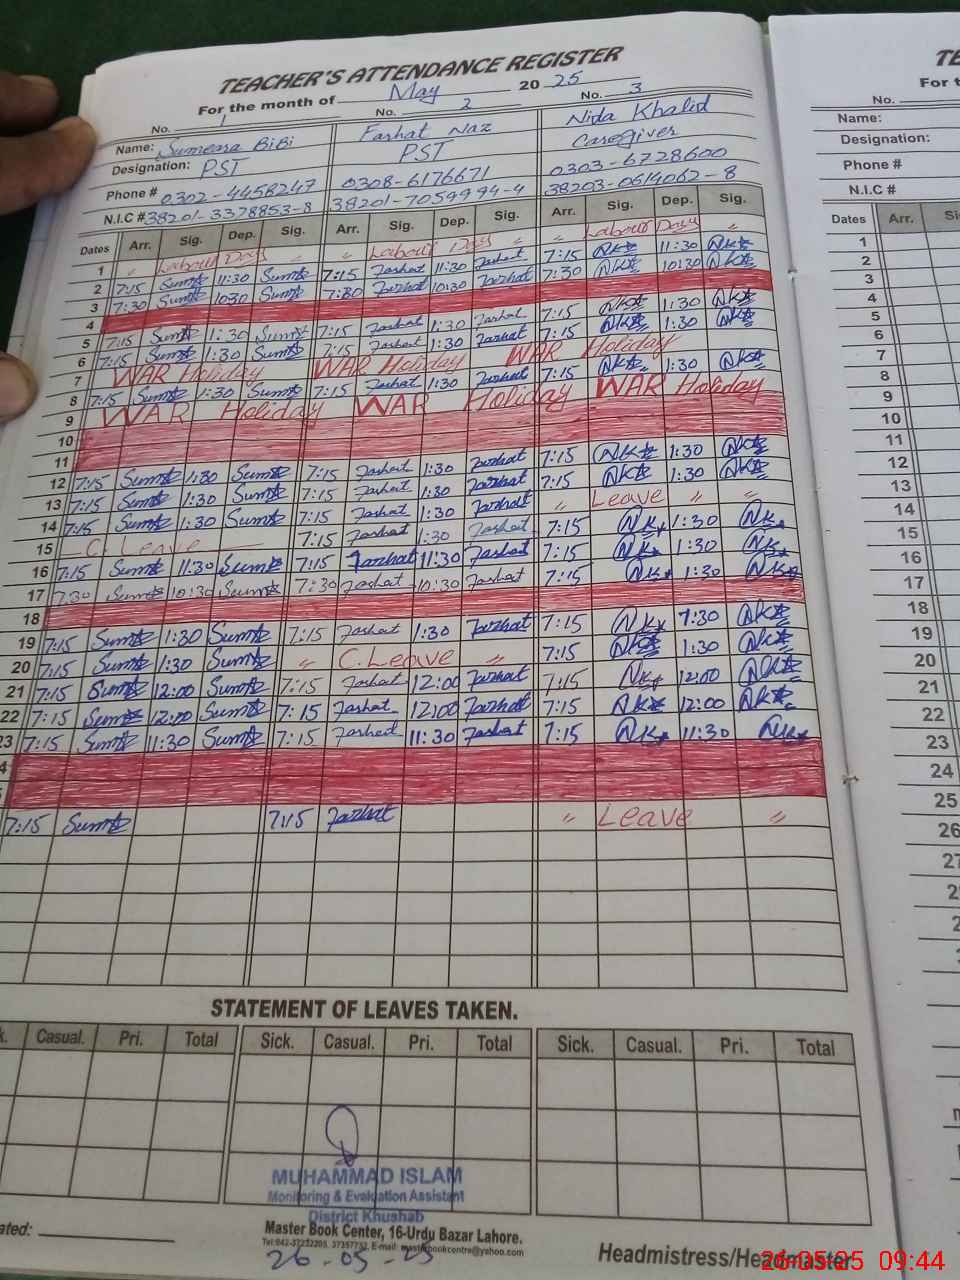 TEACHER'S ATTENDANCE REGISTER
For the month of May 2025
No. 1 No. 2 No. 3
Name: Sumeara BiBi Farhat Naz Nida Khalid
Designation: PST PST Caregiver
Phone # 0302-4458247 0308-6176671 0303-6728600
N.I.C # 38201-3378853-8 38201-7054994-4 38203-0614062-8
Dates Arr. Sig. Dep. Sig. Arr. Sig. Dep. Sig. Arr. Sig. Dep. Sig.
1 " Labour Day " " Labour Day " " Labour Day "
2 7:15 Sum 11:30 Sum 7:15 Farhat 11:30 Farhat 7:15 NK 11:30 NK
3 7:30 Sum 10:30 Sum 7:30 Farhat 10:30 Farhat 7:30 NK 10:30 NK
4
5 7:15 Sum 1:30 Sum 7:15 Farhat 1:30 Farhat 7:15 NK 1:30 NK
6 7:15 Sum 1:30 Sum 7:15 Farhat 1:30 Farhat 7:15 NK 1:30 NK
7 WAR Holiday WAR Holiday WAR Holiday
8 7:15 Sum 1:30 Sum 7:15 Farhat 1:30 Farhat 7:15 NK 1:30 NK
9 WAR Holiday WAR Holiday WAR Holiday
10
11
12 7:15 Sum 1:30 Sum 7:15 Farhat 1:30 Farhat 7:15 NK 1:30 NK
13 7:15 Sum 1:30 Sum 7:15 Farhat 1:30 Farhat 7:15 NK 1:30 NK
14 7:15 Sum 1:30 Sum 7:15 Farhat 1:30 Farhat " Leave " "
15 C. Leave 7:15 Farhat 1:30 Farhat 7:15 NK 1:30 NK
16 7:15 Sum 11:30 Sum 7:15 Farhat 11:30 Farhat 7:15 NK 1:30 NK
17 7:30 Sum 10:30 Sum 7:30 Farhat 10:30 Farhat 7:15 NK 1:30 NK
18
19 7:15 Sum 1:30 Sum 7:15 Farhat 1:30 Farhat 7:15 NK 7:30 NK
20 7:15 Sum 1:30 Sum " C. Leave " 7:15 NK 1:30 NK
21 7:15 Sum 12:00 Sum 7:15 Farhat 12:00 Farhat 7:15 NK 12:00 NK
22 7:15 Sum 12:00 Sum 7:15 Farhat 12:00 Farhat 7:15 NK 12:00 NK
23 7:15 Sum 11:30 Sum 7:15 Farhat 11:30 Farhat 7:15 NK 11:30 NK
4
7:15 Sum 7:15 Farhat " Leave "
STATEMENT OF LEAVES TAKEN.
k. Casual. Pri. Total Sick. Casual. Pri. Total Sick. Casual. Pri. Total
MUHAMMAD ISLAM
Monitoring & Evaluation Assistant
District Khushab
ated:
Master Book Center, 16-Urdu Bazar Lahore.
26-05-25
Headmistress/Headmaster
TE
For the
No.
Name:
Designation:
Phone #
N.I.C #
Dates Arr. Si
1
2
3
4
5
6
7
8
9
10
11
12
13
14
15
16
17
18
19
20
21
22
23
24
25
26
27
26-05-25 09:44